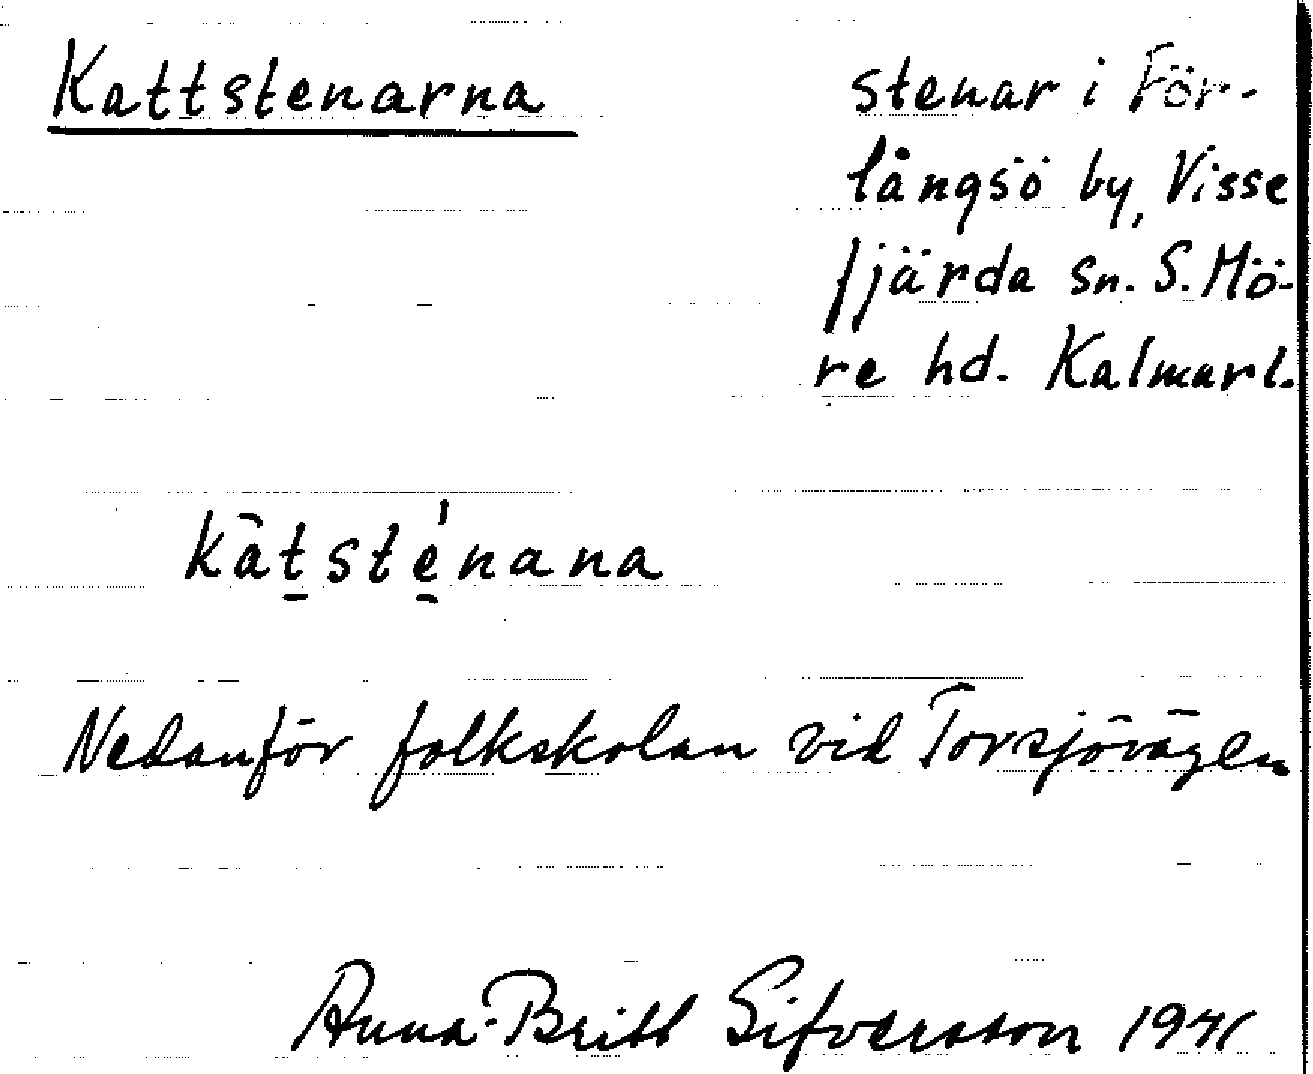 Kattstenarna
stenar i För-
långsö by, Visse
fjärda sn. S. Mö-
re hd. Kalmarl.
kātsténana
Nedanför folkskolan vid Torsjövägen
Anna-Britt Sifversson 1941